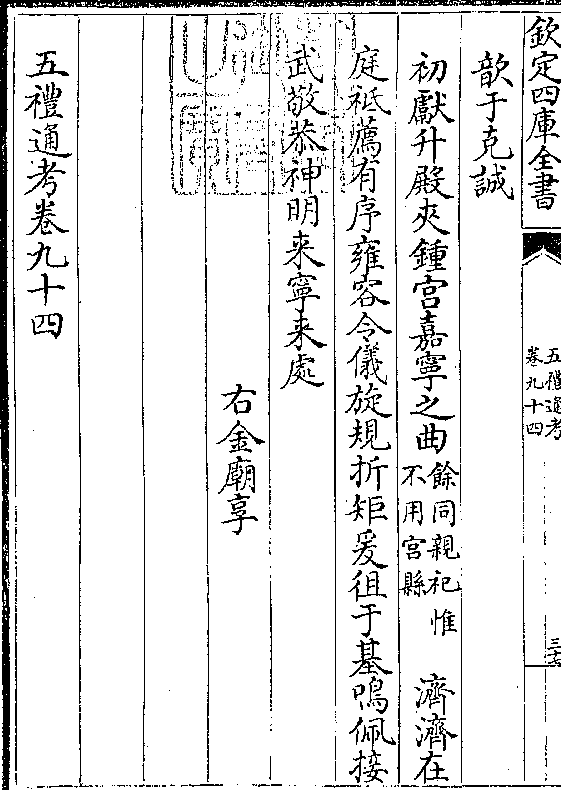 欽定四庫全書
五禮通考
卷九十四
三十七
歆于克誠
初獻升殿夾鍾宮嘉寧之曲餘同親祀惟不用宮縣 濟濟在
庭祗薦有序雍容令儀旋規折矩爰徂于基鳴佩接
武敬恭神明来寧来處
右金廟享
五禮通考卷九十四